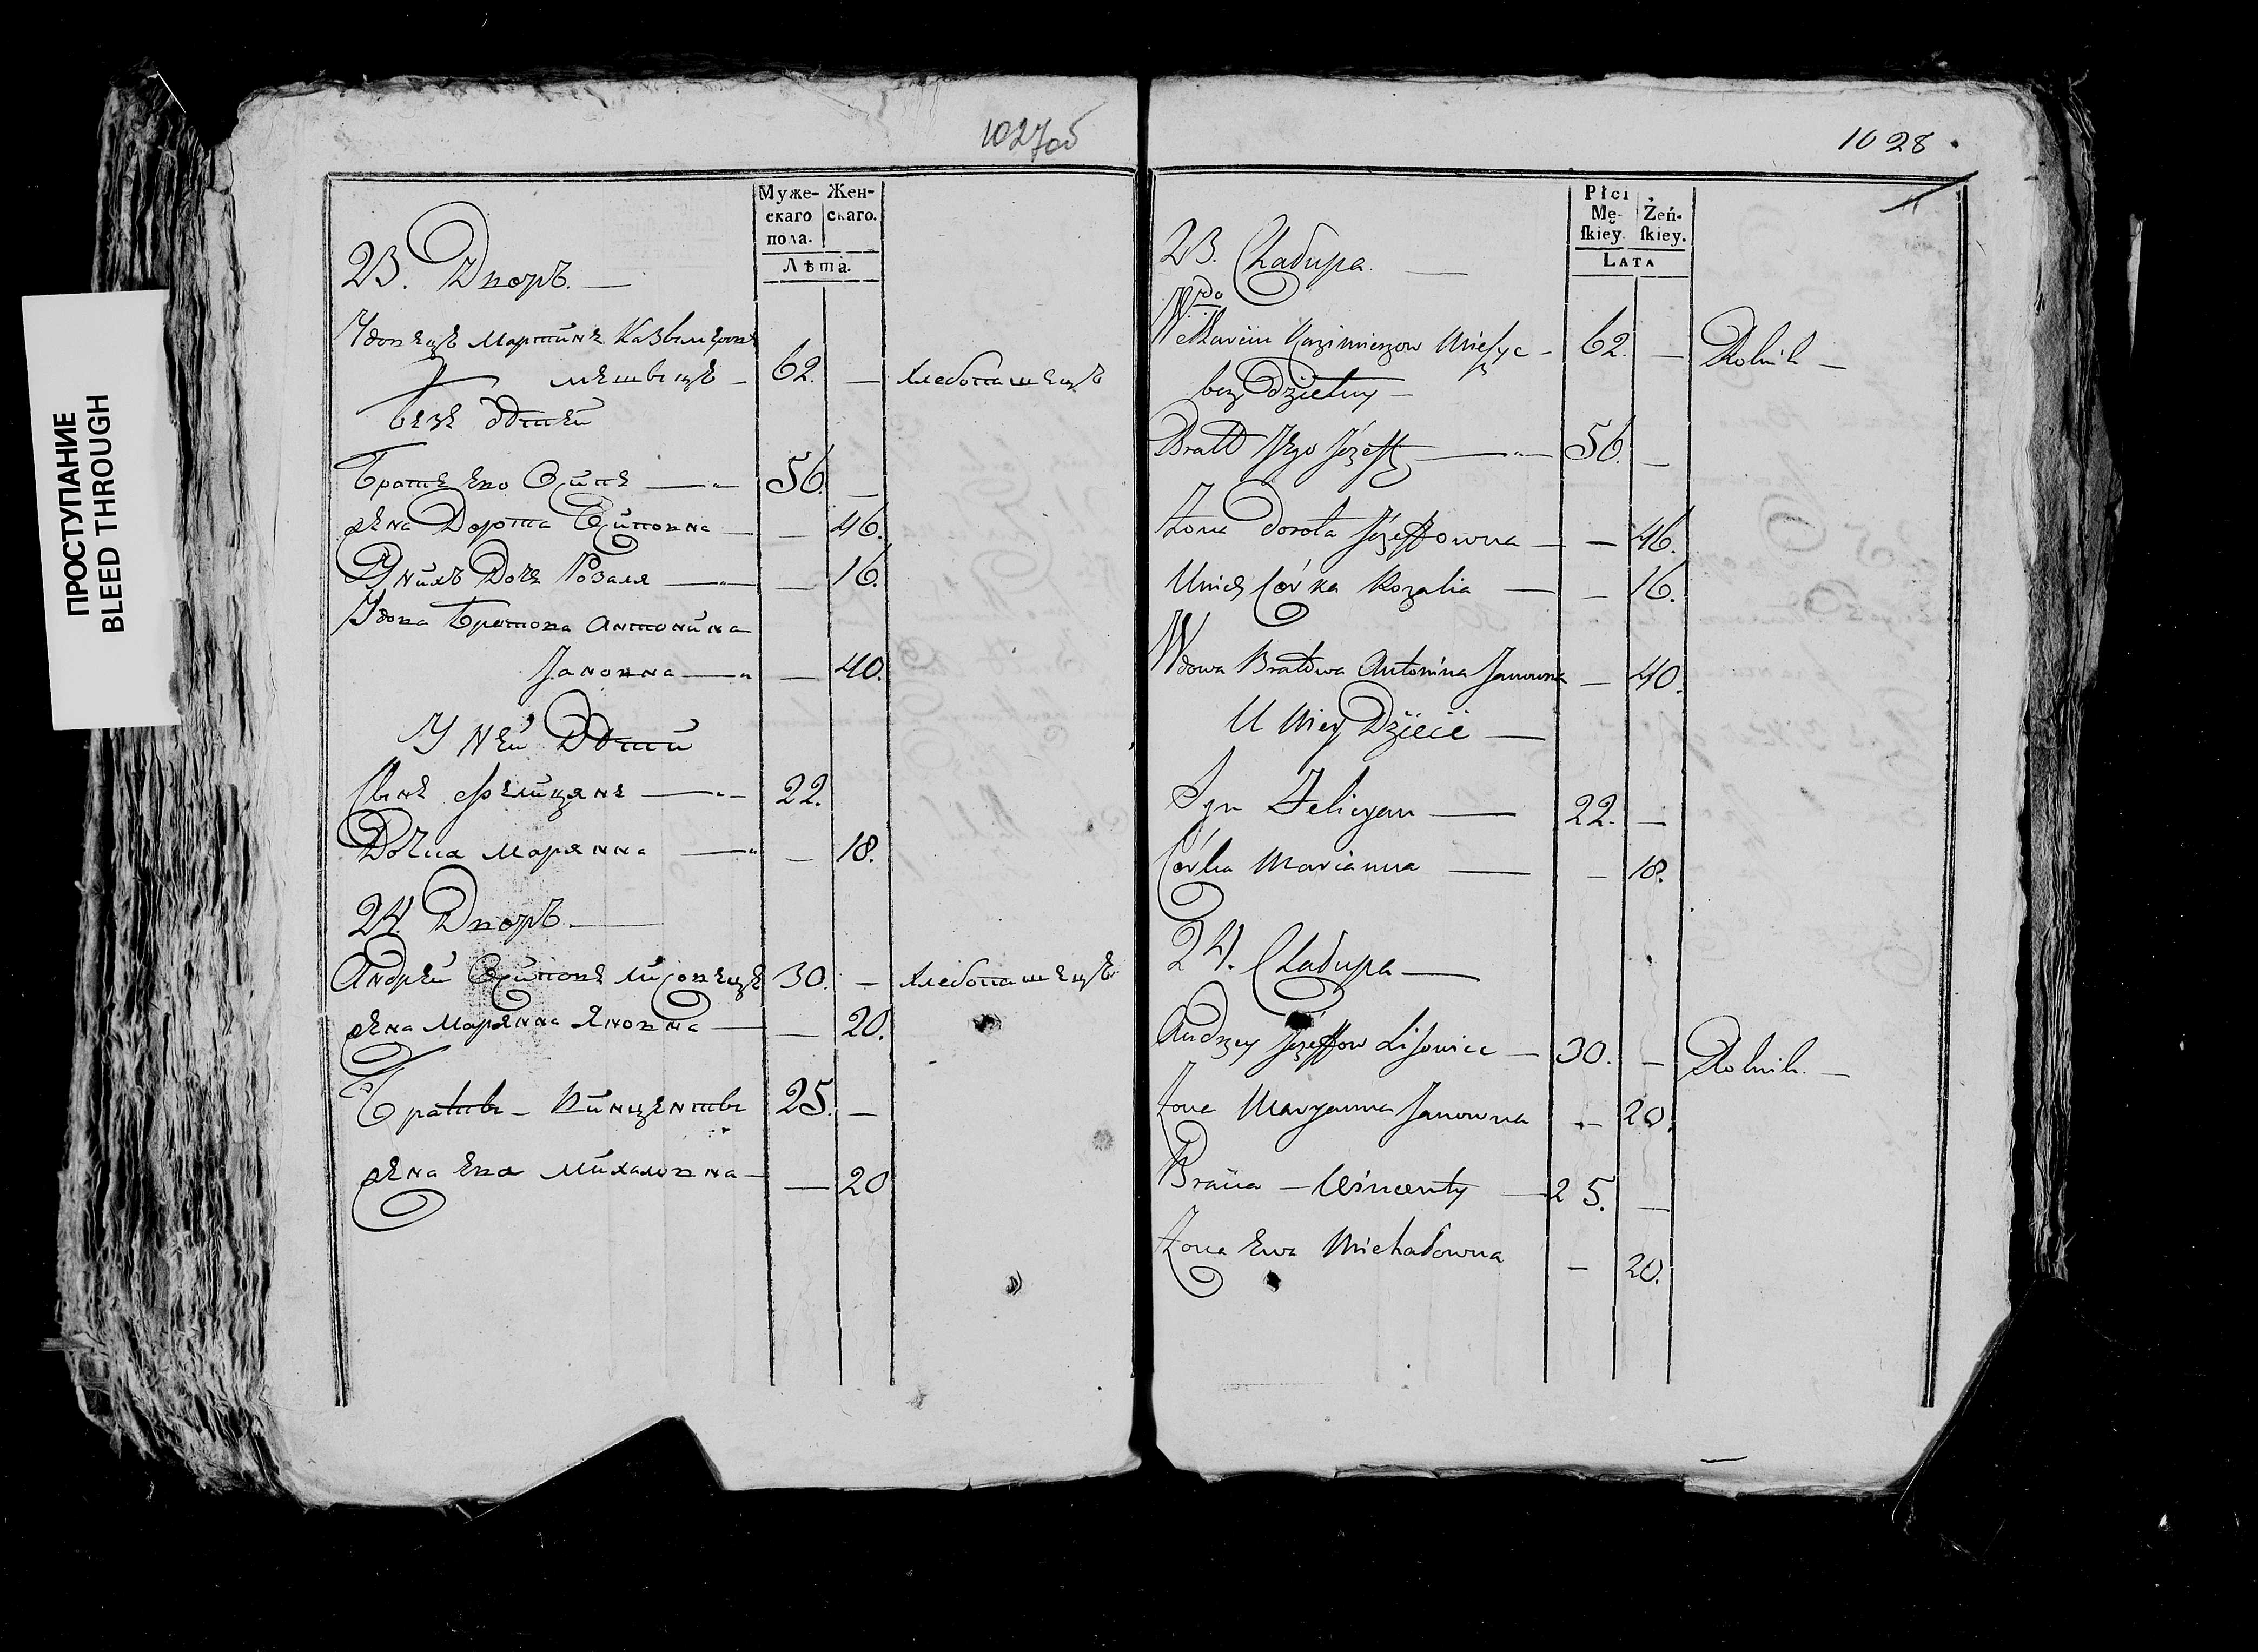 ПРОСТУПАНИЕ
BLEED THROUGH
1027об
Муже-
скаго
пола.
Жен-
скаго.
Лѣта.
23. Дворъ. —
Удовецъ Мартинъ Казьмеровъ
Мѣшвіцъ — 62. — хлебопашецъ
безъ дѣтей
Братъ Его Осипъ — 56. —
жена Дорота Осиповна — — 46.
У нихъ Дочь Розаля — — 16.
Удова Братова Антонина
Јановна — — 40.
У Ней Дѣти
Сынъ Фелицянъ — 22.
Дочка Марянна — — 18.
24. Дворъ —
Андрей Осиповъ Лисовецъ 30. — хлебопашецъ
жена Марянна Яновна — — 20.
Братъ — Винцентъ 25. —
жена Ева Михаловна — — 20
1028.
Płci
Mę-
ſkiey.
Żeń-
ſkiey.
LATA
23. Chałupa. —
Marcin Kazimierzow — 62. — Rolnik —
bez Dzietny —
Bratt Jego Józeff — 56. —
Żona Dorota Józeffowna — — 46.
U nich Córka Rozalia — — 16.
Wdowa Bratowa Antonina Janowna — 40.
U Niey Dzieci —
Syn Felicyan — 22. —
Córka Marianna — — 18.
24. Chałupa —
Andrzey Józeffow Lisowiec — 30. — Rolnik. —
Żona Maryanna Janowna — 20.
Braćia — Wincenty — 25. —
Żona Ewa Michałowna — 20.